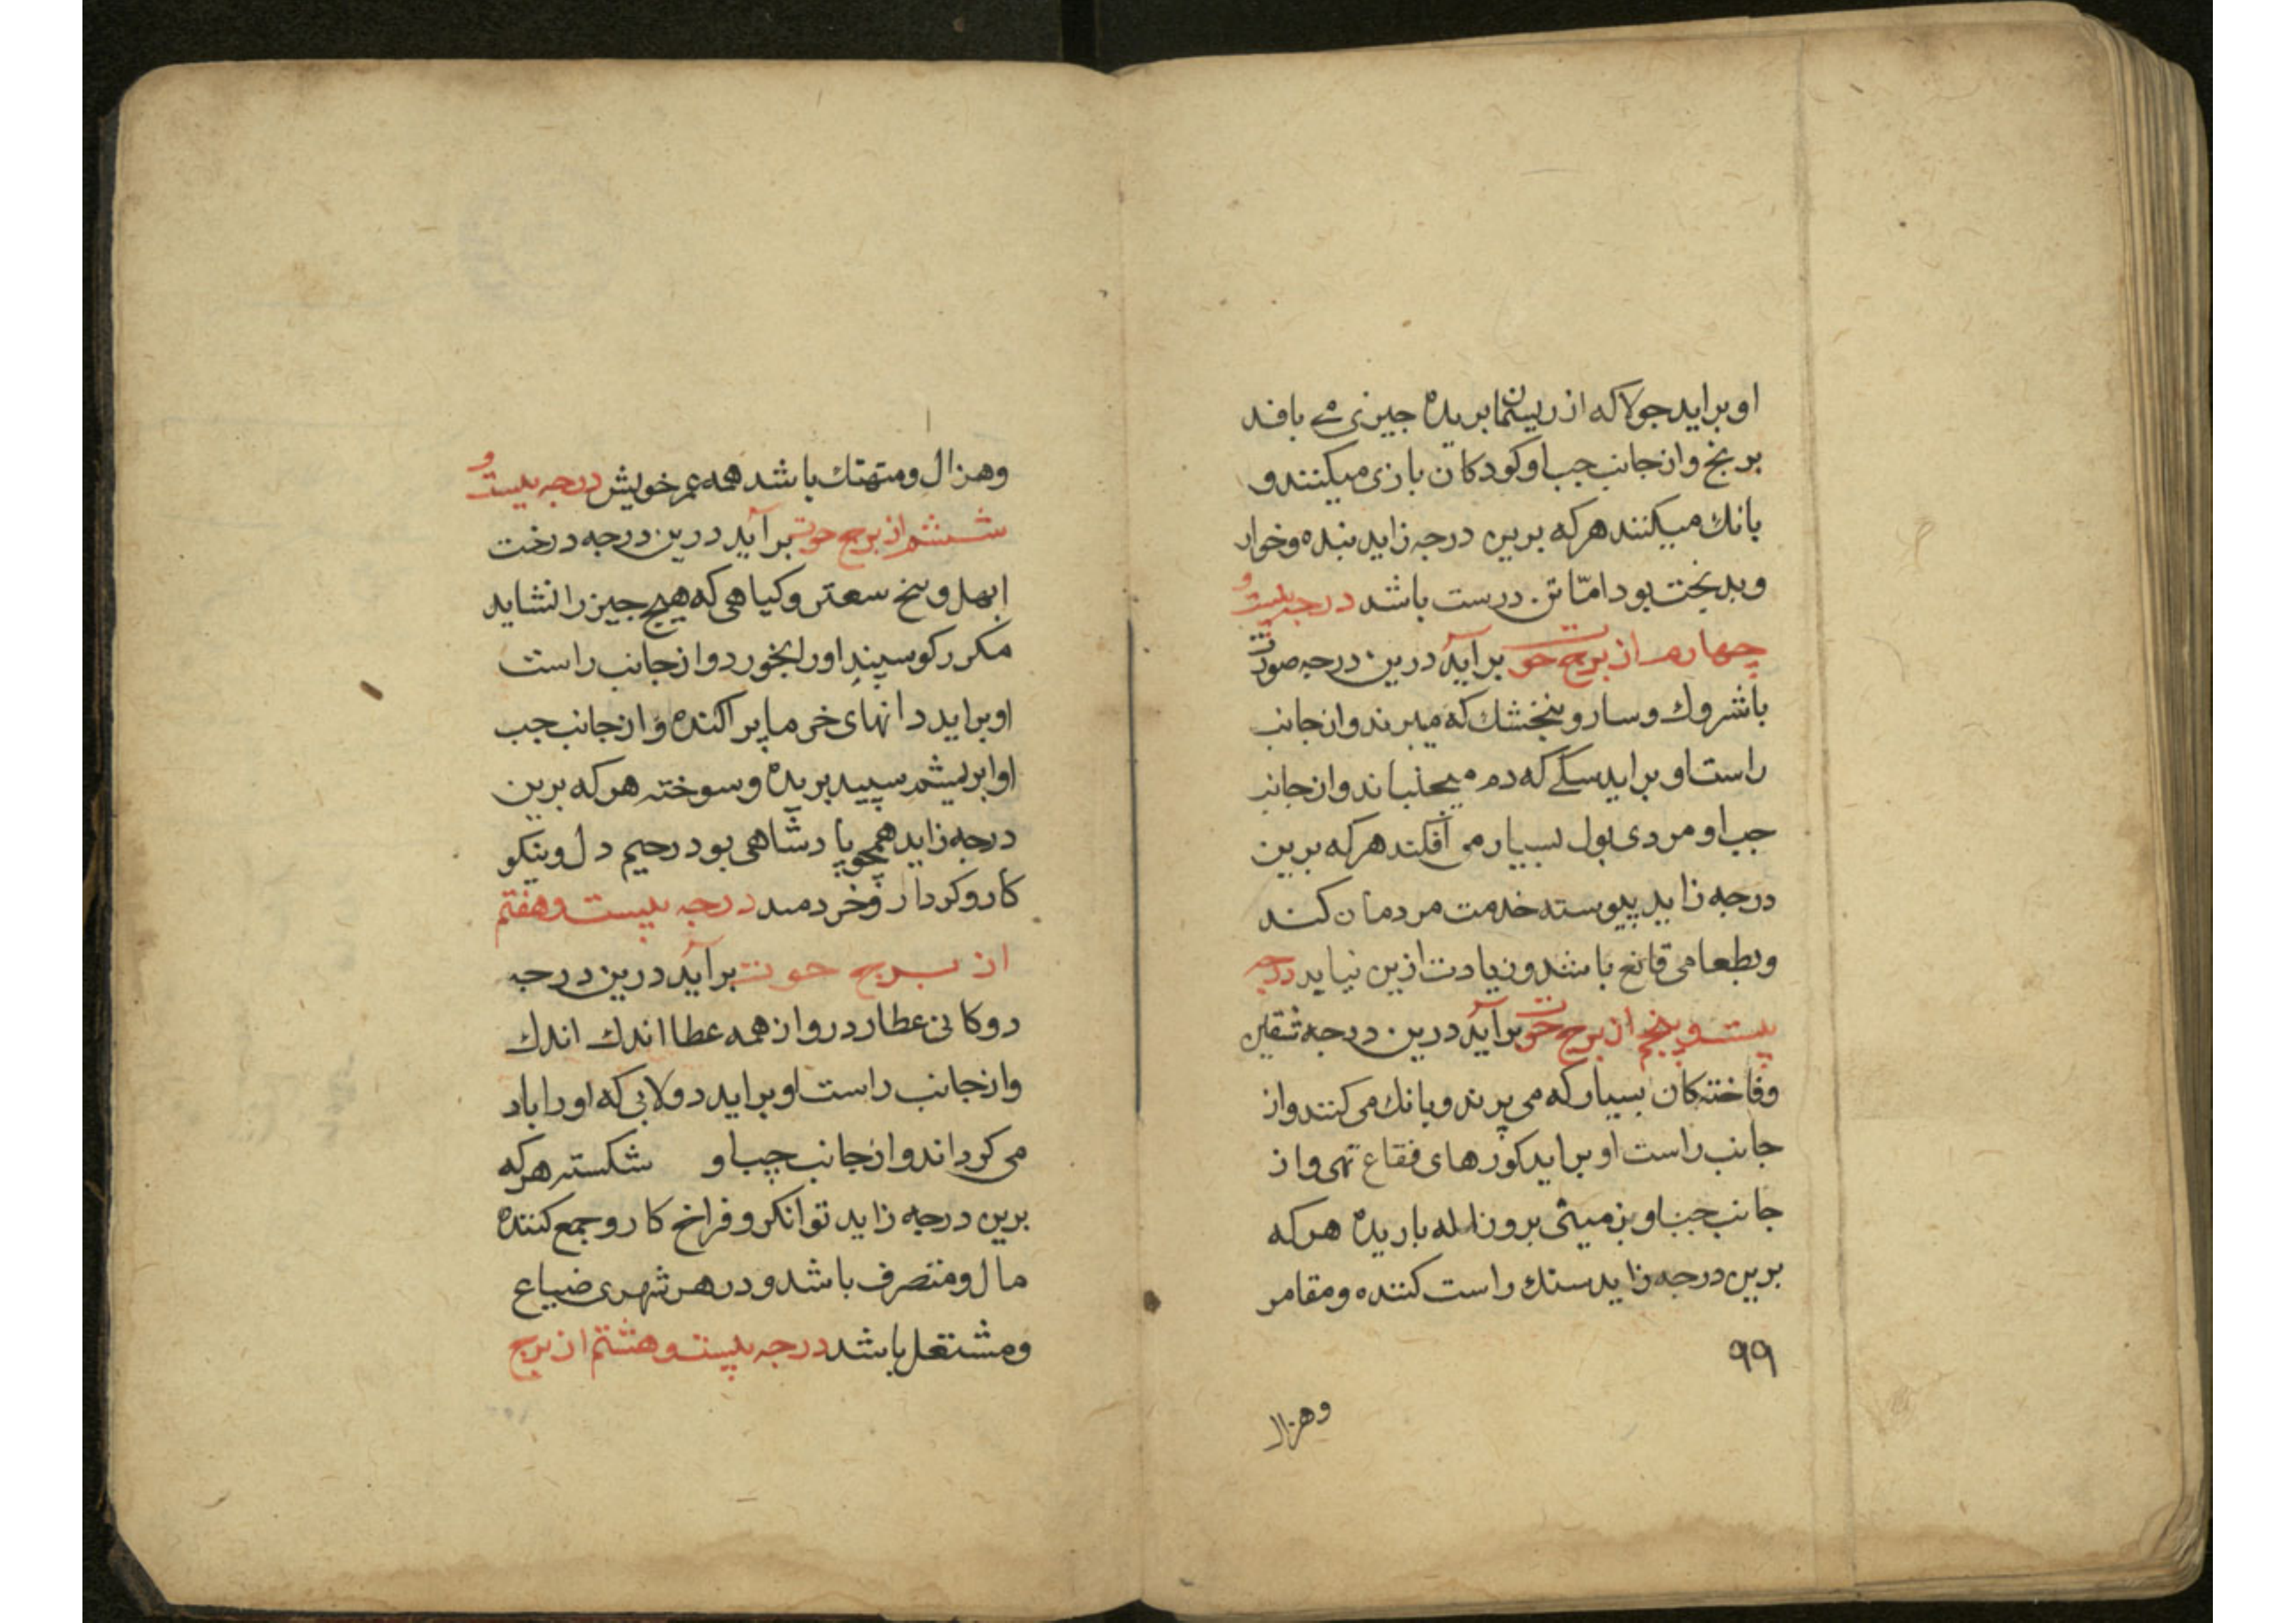 او براید جولاکه از ریسمانها بریده جیزی می بافد
بر نخ و از جانب جب او کودکان بازی میکنند و
بانك میکنند هرکه برین درجه زاید بنده و خوار
و بدبخت بود امّا تن درست باشد درجه بیست و
چهارم از برج حوت برآید درین درجه صورت
باشروك و سار و بنجشك که میبرند و از جانب
راست او براید سکے که دم میجنباند و از جانب
جب او مردی بول بسیار می افکند هرکه برین
درجه زاید پیوسته خدمت مردمان کند
و بطعامی قانع باشد و زیادت ازین نیاید درجه
بیست و پنجم از برج حوت برآید درین درجه
وفاختکان بسیار که می پرند و بانك می کنند و از
جانب راست او براید کوزهای فقاع تهی و از
جانب جب او زمینی برو ژاله باریده هرکه
برین درجه زاید سنك راست کننده و مقامر
۹۹
وهزال
وهزال و متهتك باشد همه عمر خویش درجه بیست و
ششم از برج حوت برآید درین درجه درخت
ابهل و بیخ سعتر و کیاهی که هیچ جیز را نشاید
مکر رکوسپند اورا بخورد و از جانب راست
او براید دانهای خرما پراکنده و از جانب جب
او ابریشم سپید بریده و سوخته هرکه برین
درجه زاید همچو پادشاهی بود رحیم دل و نیکو
کار و کردار و خردمند درجه بیست و هفتم
از برج حوت برآید درین درجه
دوکانی عطار درو از همه عطا اندك اندك
و از جانب راست او براید دولابی که اورا باد
می کرداند و از جانب چپ او شکسته هرکه
برین درجه زاید توانکر و فراخ کار و جمع کننده
مال و متصرف باشد و در هر شهری ضیاع
و مشتعل باشد درجه بیست و هشتم از برج